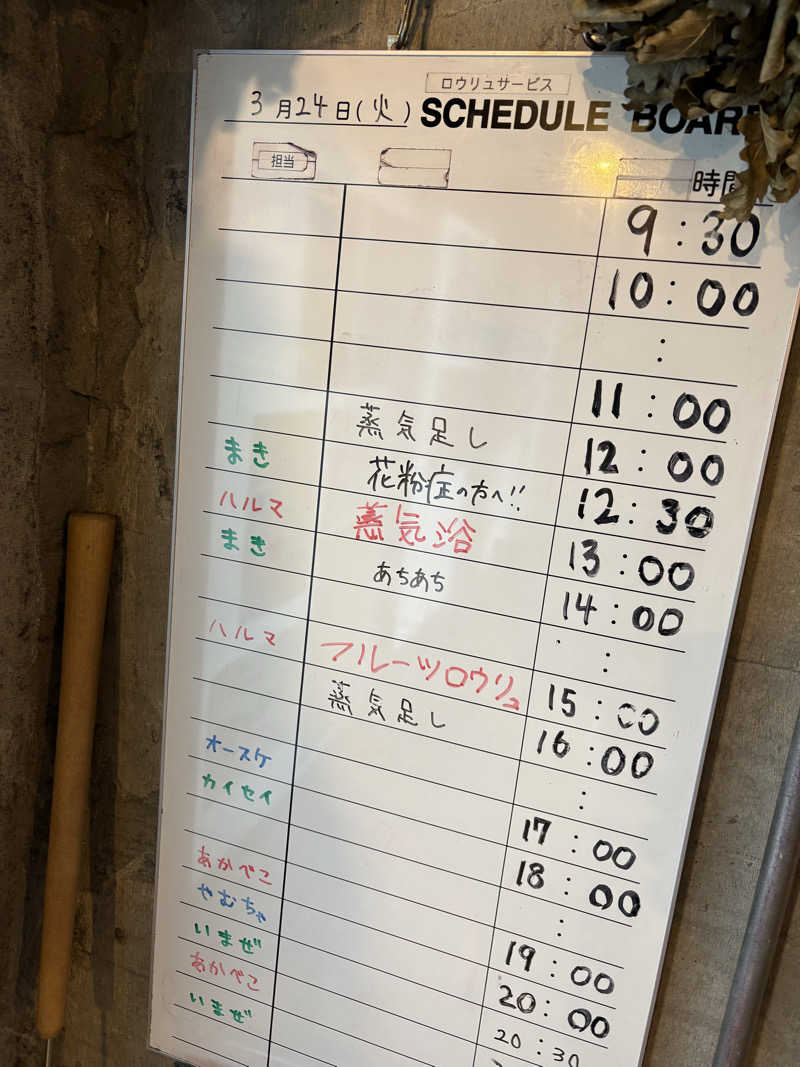 ロウリュサービス
3月24日(火) SCHEDULE BOARD
担当 時間
9:30
10:00
:
11:00
蒸気足し 12:00
まき 花粉症の方へ!! 12:30
ハルマ 蒸気浴 13:00
まき あちあち 14:00
:
ハルマ フルーツロウリュ 15:00
蒸気足し 16:00
:
オースケ 17:00
カイセイ 18:00
:
あかべこ 19:00
やむちゃ 20:00
いまぜ 20:30
あかべこ
いまぜ